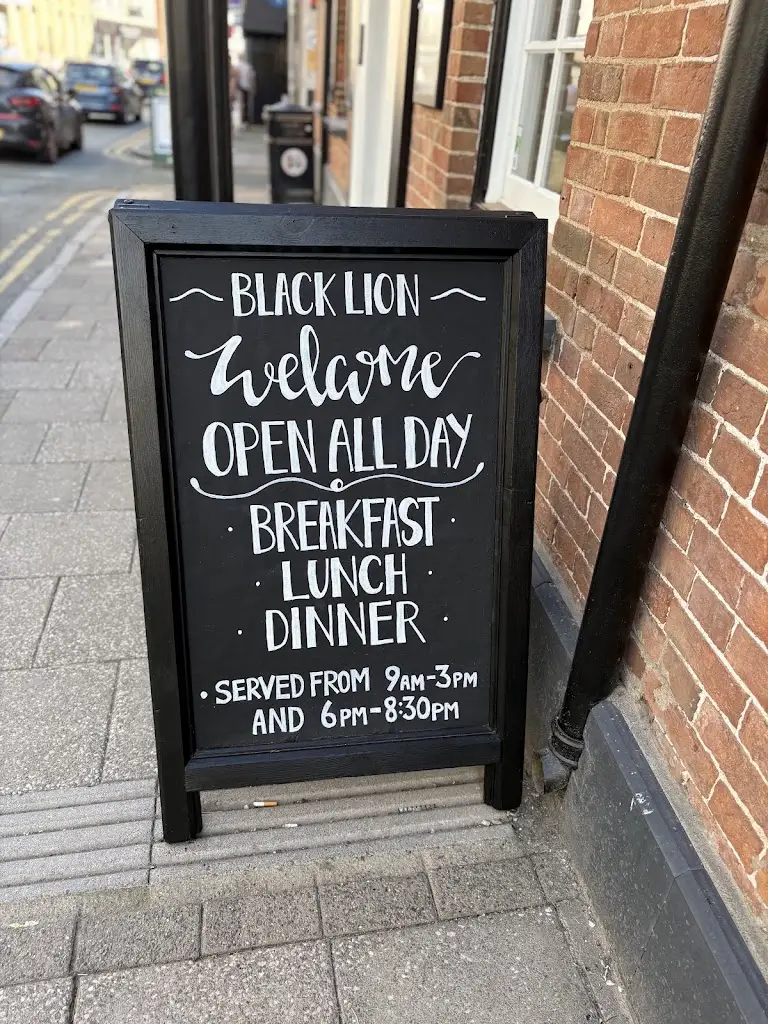 BLACK LION
Welcome
OPEN ALL DAY
· BREAKFAST ·
· LUNCH ·
· DINNER ·
· SERVED FROM 9AM-3PM
AND 6PM-8:30PM